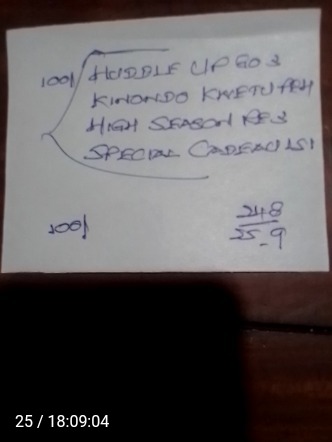 100/ HUDDLE UP GO 3
KINONDO KWETU
HIGH SEASON RE 3
SPECIAL CADEAU
100/
24.8
25-9
25 / 18:09:04